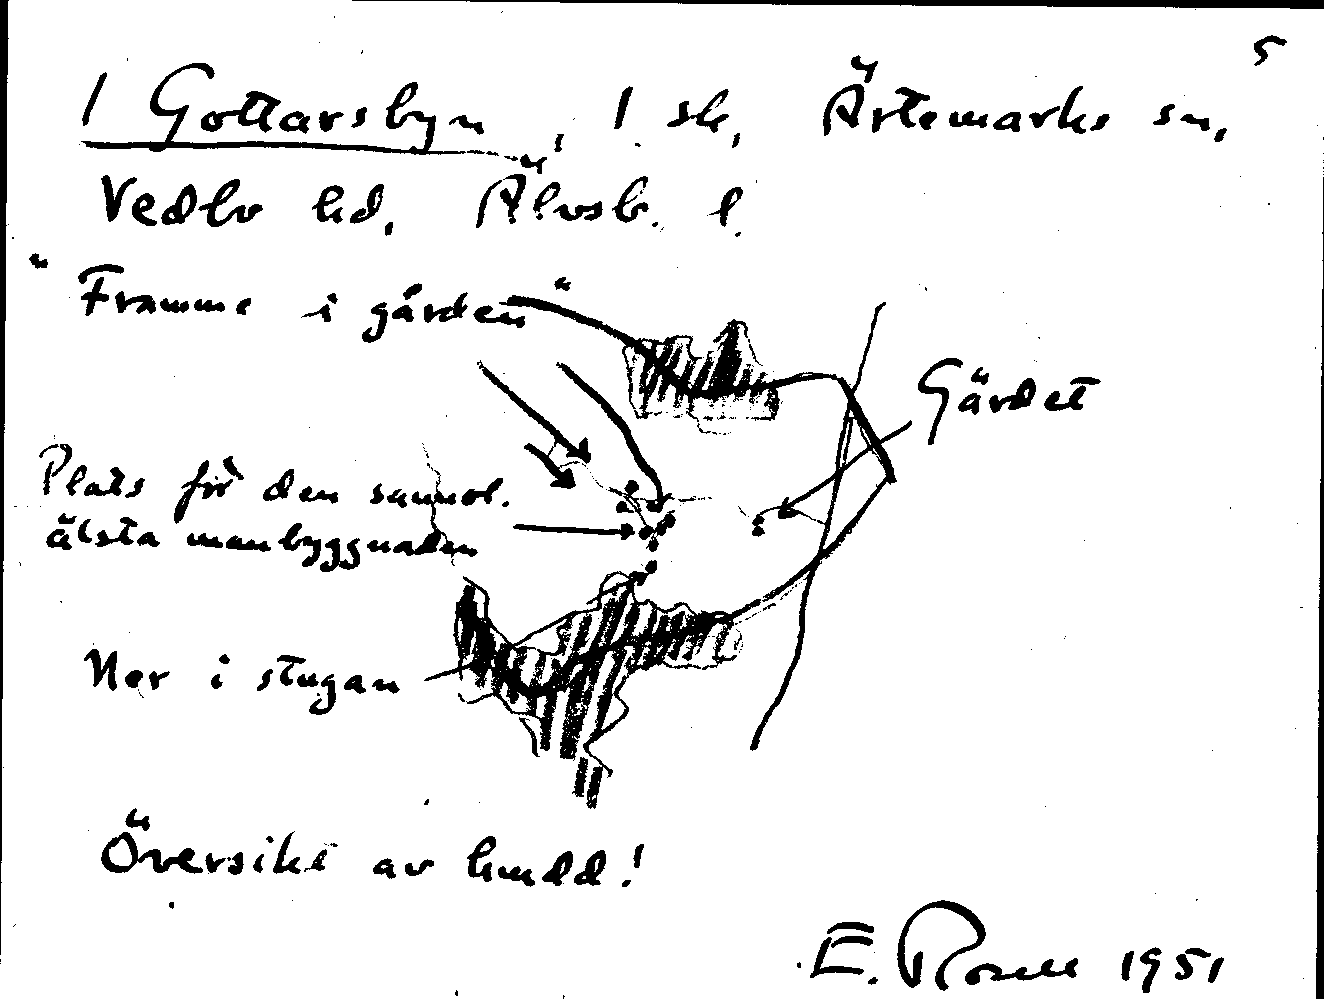 5
1 Gottarsbyn, 1 sk, Ärtemarks sn,
Vedbo hd, Älvsb. l.
"Framme i gården"
Gärdet
Plats för den sannol.
älsta manbyggnaden
Ner i stugan
Översikt av
E. Rosell 1951